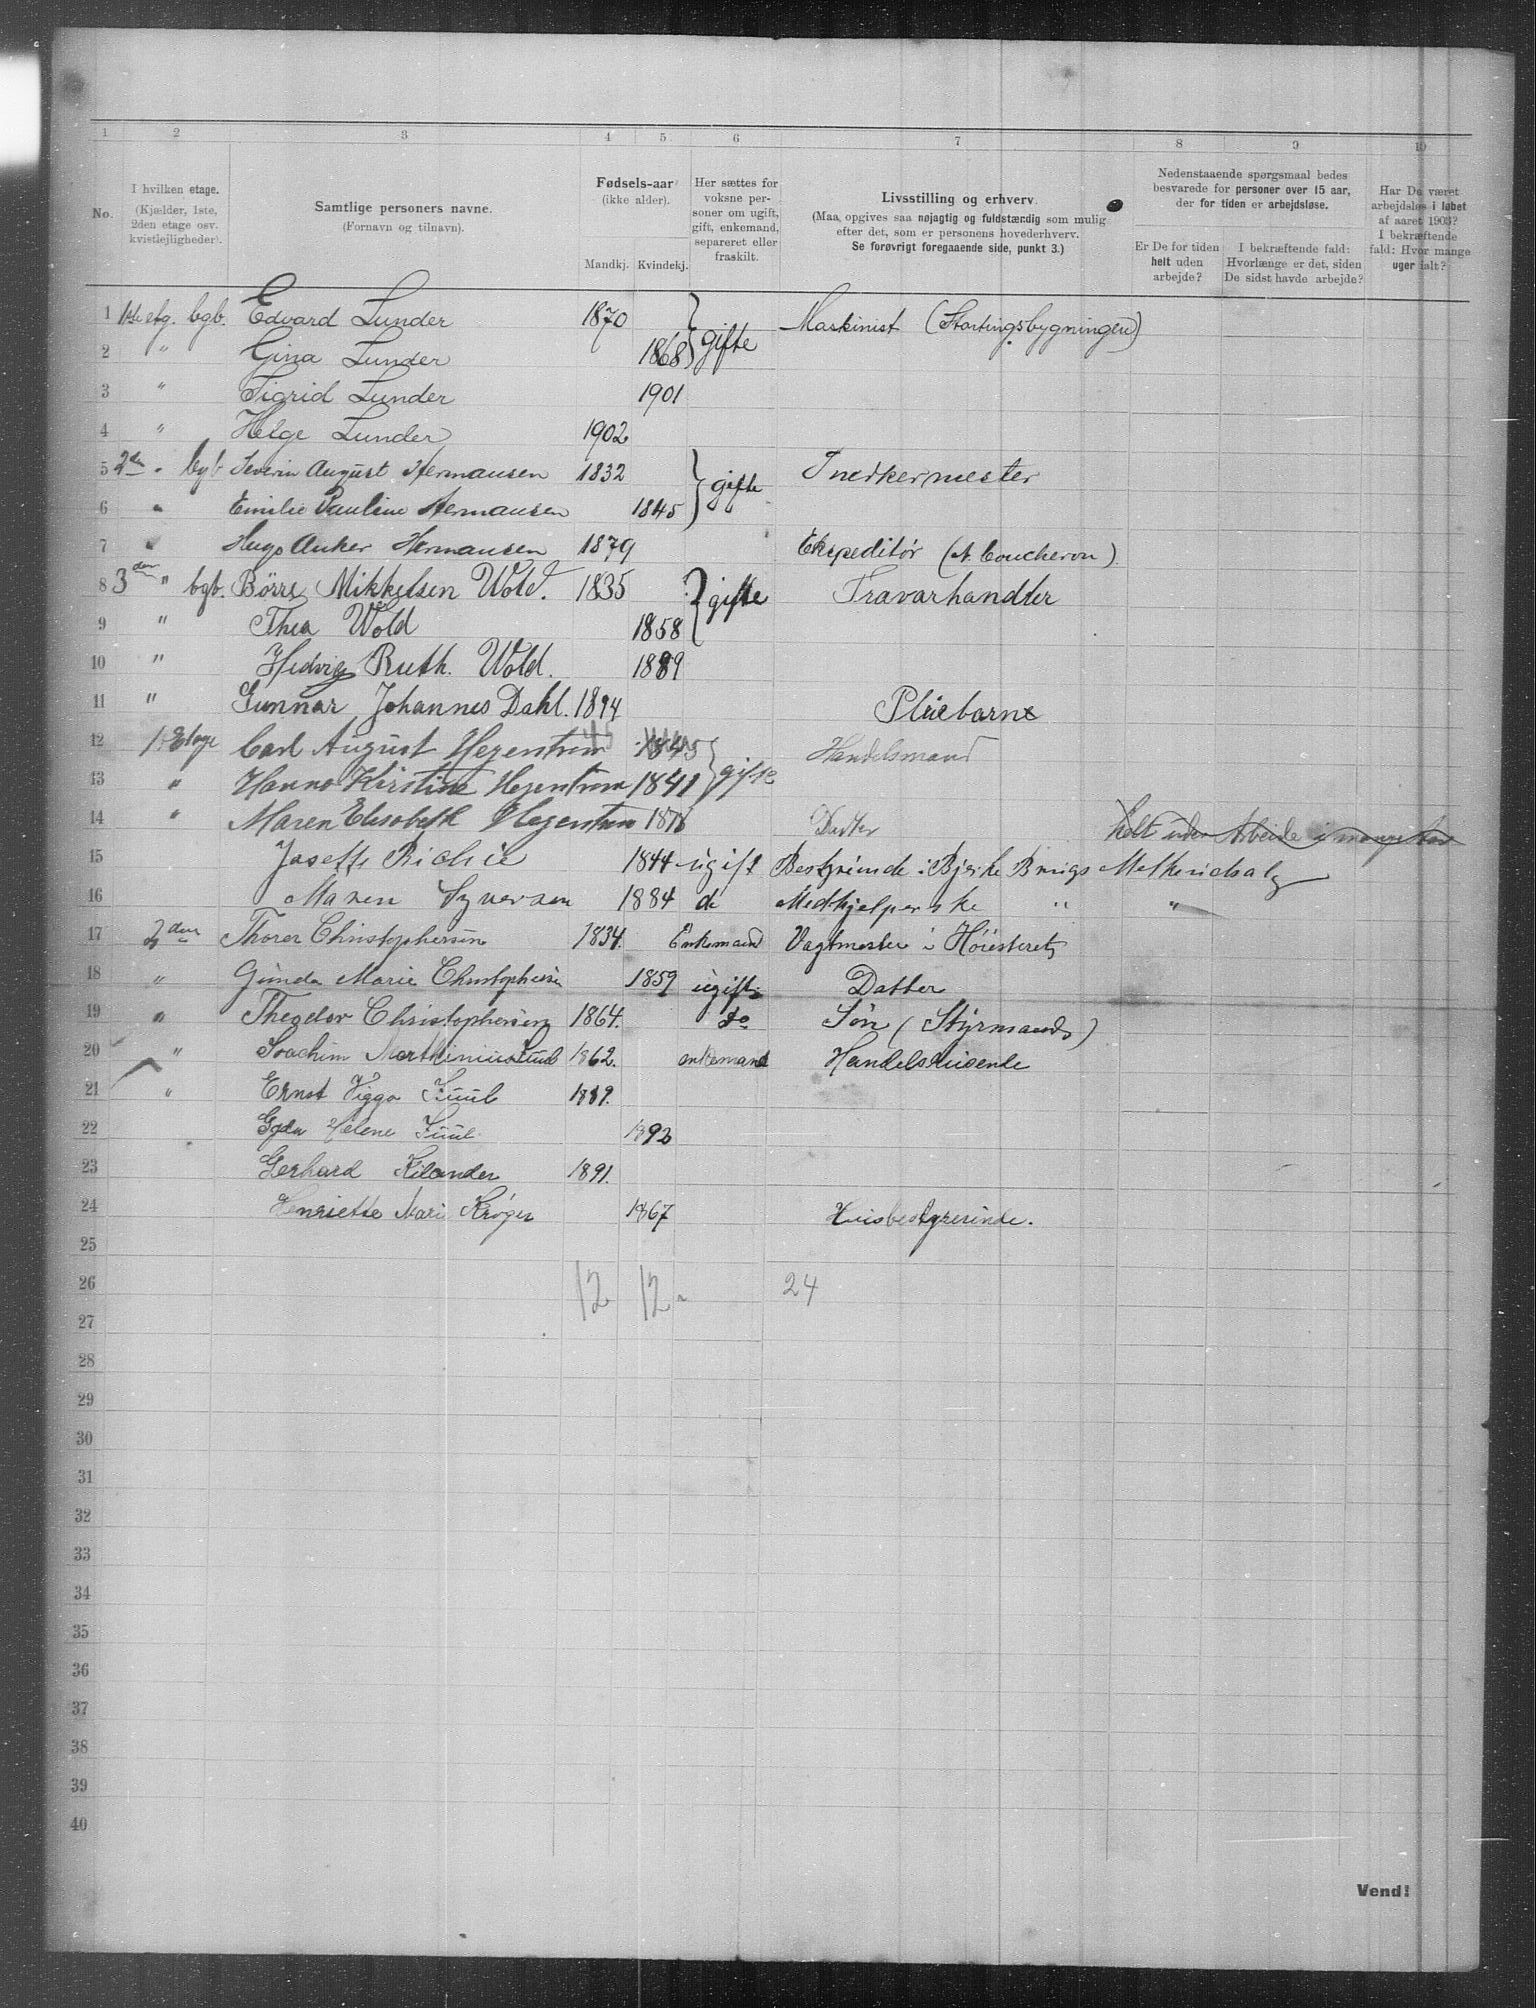 1 2 3 4 5 6 7 8 9 10
No.
I hvilken etage.
(Kjælder, 1ste,
2den etage osv.
kvistlejligheder).
Samtlige personers navne.
(Fornavn og tilnavn).
Fødsels-aar
(ikke alder).
Mandkj. Kvindekj.
Her sættes for
voksne per-
soner om ugift,
gift, enkemand,
separeret eller
fraskilt.
Livsstilling og erhverv.
(Maa opgives saa nøjagtig og fuldstændig som mulig
efter det, som er personens hovederhverv.
Se forøvrigt foregaaende side, punkt 3.)
Nedenstaaende spørgsmaal bedes
besvarede for personer over 15 aar,
der for tiden er arbejdsløse.
Er De for tiden
helt uden
arbejde?
I bekræftende fald:
Hvorlænge er det, siden
De sidst havde arbejde?
Har De været
arbejdsløs i løbet
af aaret 1903?
I bekræftende
fald: Hvor mange
uger ialt?
1 1ste etg. bgb. Edvard Lunder 1870 gifte Maskinist (Stortingsbygningen)
2 " Gina Lunder 1868
3 " Sigrid Lunder 1901
4 " Helge Lunder 1902
5 2den " bgb Severin August Hermansen 1832 gifte Snedkermester
6 " Emilie Pauline Hermansen 1845
7 " Hugo Anker Hermansen 1879 Ekspeditør (A. Coucheron)
8 3den " bgb. Børre Mikkelsen Wold. 1835 gifte Travarhandler
9 " Thea Wold 1858
10 " Hedvig Ruth. Wold. 1889
11 " Gunnar Johannes Dahl. 1894 Pleiebarn
12 1 Etage Carl August Hegerstrøm 45 1845 gifte Handelsmand
13 " Hanna Kirstine Hegerstrøm 1841
14 " Maren Elisabeth Hegerstrøm Datter helt uden Arbeide i mange
15 Josefte 1844 ugift Bestyrinde i Bjerke Brugs Melkeudsalg
16 Maren Syversen 1884 do Medhjelperske " "
17 2den Thorer Christophersen 1834. Enkemand Vagtmester i Høiesteret
18 " Gunda Marie Christophersen 1859 ugift Datter
19 " Theodor Christophersen 1864. do Søn (Styrmand)
20 " Joachim Marthinius Juul 1862. enkemand Handelsreisende
21 " Ernst Viggo Juul 1889.
22 Helene Juul 1892
23 Gerhard Kilander 1891.
24 Henriette Mari Krøger 1867 Husbestyrerinde.
25
26 12 12 24
27
28
29
30
31
32
33
34
35
36
37
38
39
40
Vend!